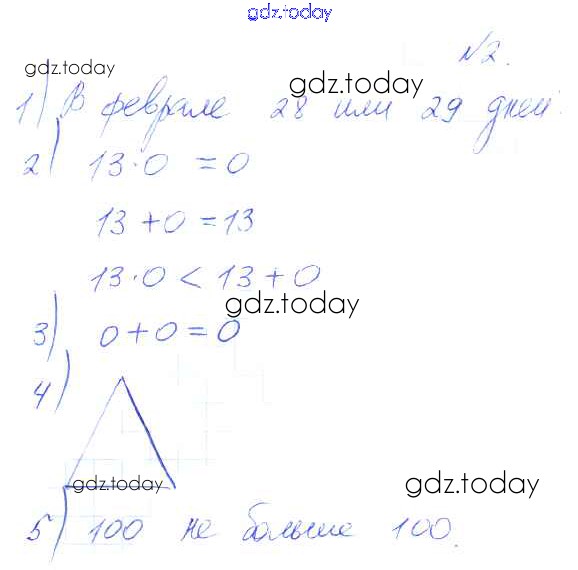 gdz.today
№2.
gdz.today
gdz.today
1) В феврале 28 или 29 дней.
2) 13·0 = 0
13 + 0 = 13
13·0 < 13 + 0
gdz.today
3) 0 + 0 = 0
4)
gdz.today
gdz.today
5) 100 не больше 100.